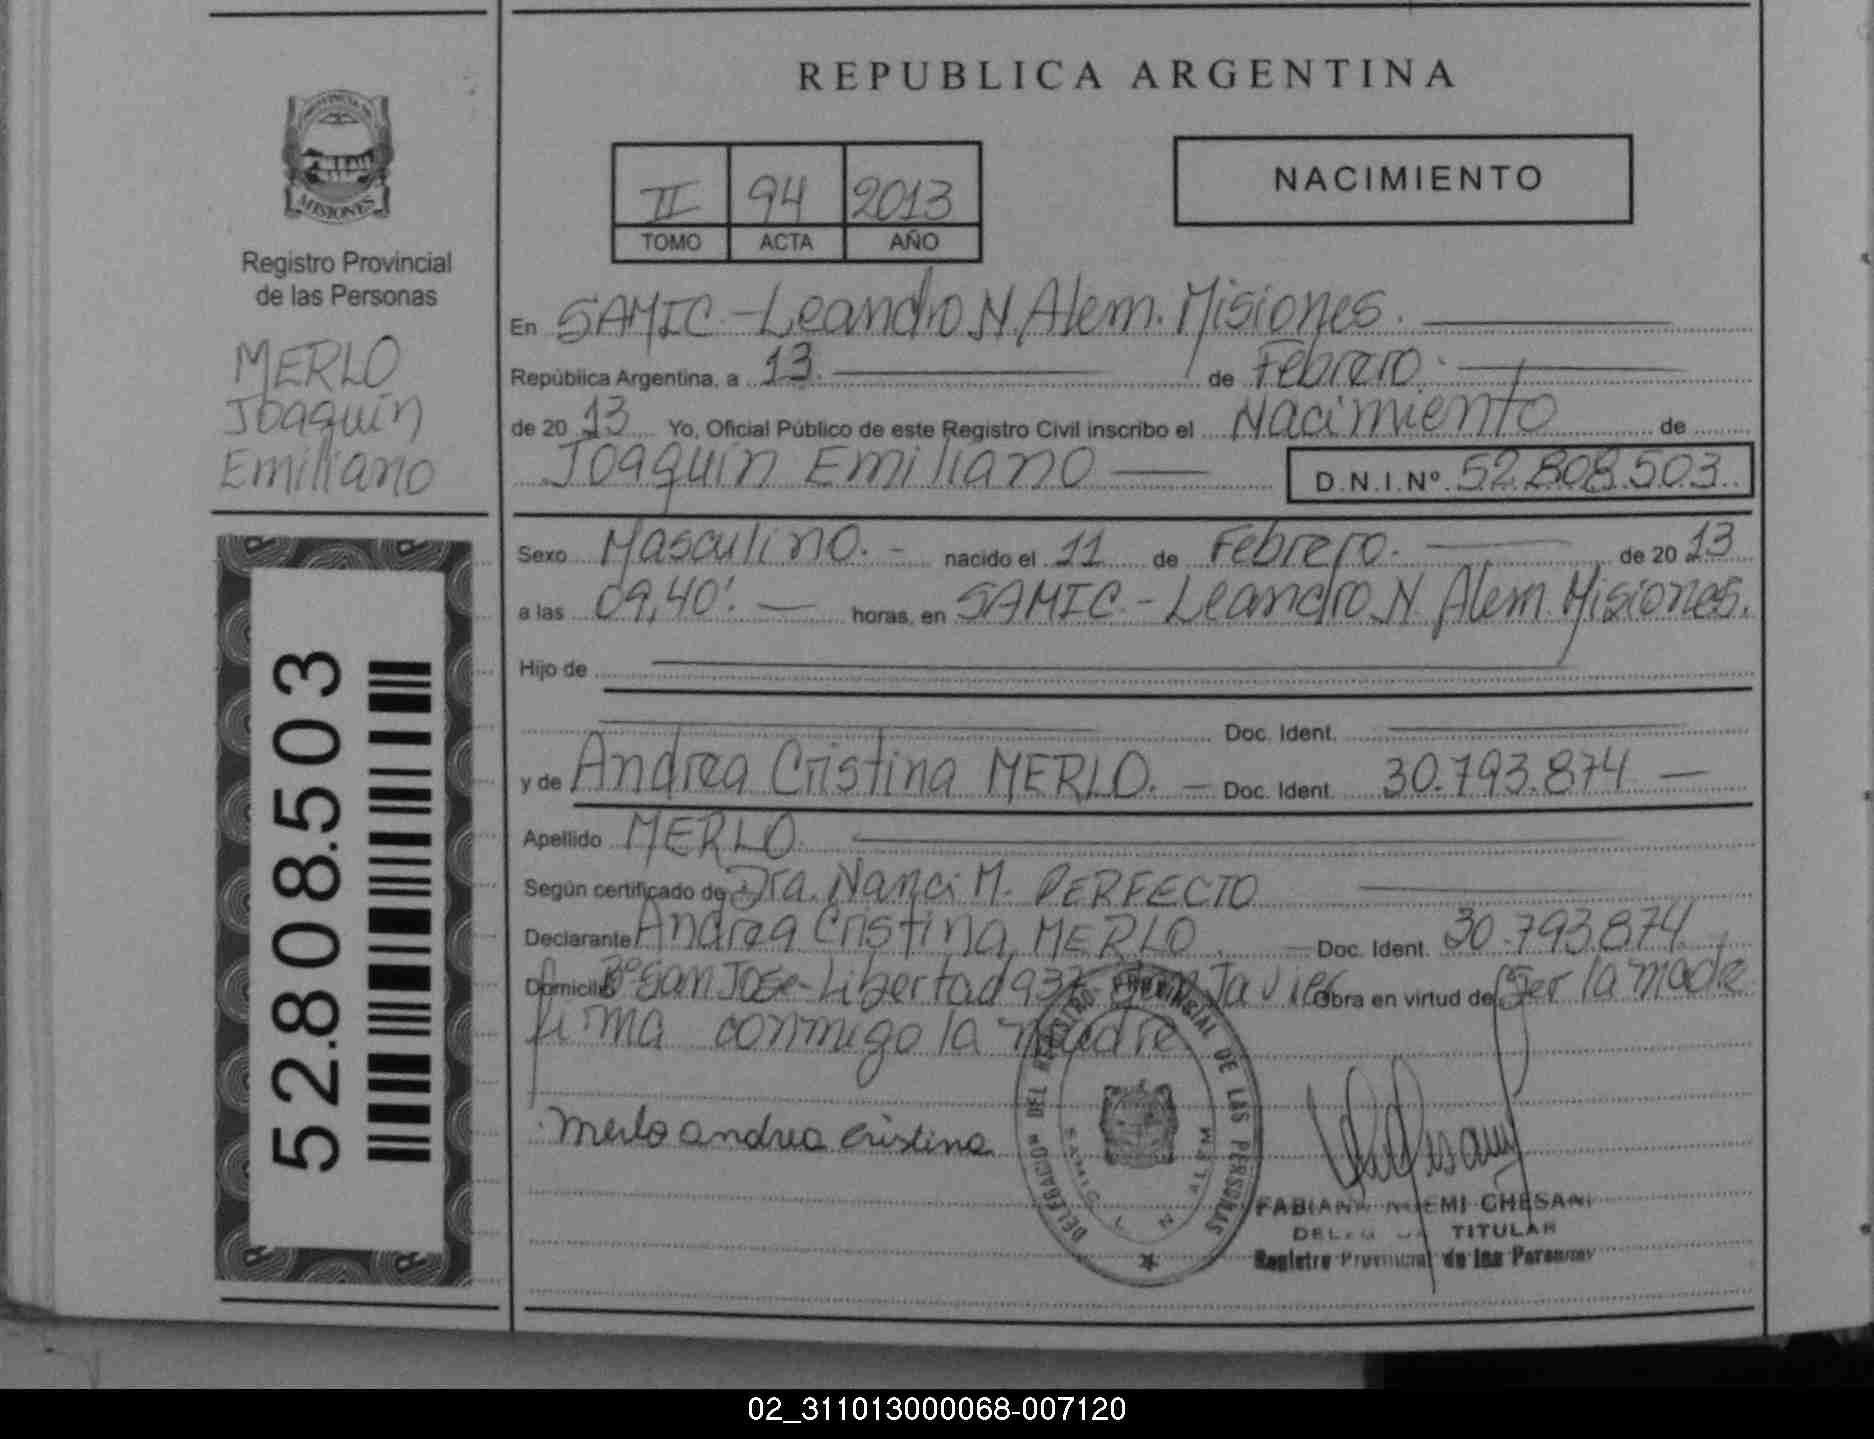 REPUBLICA ARGENTINA
PROVINCIA DE
MISIONES
Registro Provincial
de las Personas
MERLO
Joaquín
Emiliano
52.808.503
II 94 2013
TOMO ACTA AÑO
NACIMIENTO
En SAMIC.-Leandro N. Alem. Misiones.
República Argentina, a 13. de Febrero.
de 20 13 Yo, Oficial Público de este Registro Civil inscribo el Nacimiento de
Joaquín Emiliano D.N.I.Nº 52.808.503.
Sexo Masculino. - nacido el 11 de Febrero. de 20 13
a las 09,40'. horas, en SAMIC.-Leandro N. Alem. Misiones.
Hijo de
Doc. Ident.
y de Andrea Cristina MERLO. Doc. Ident. 30.793.874
Apellido MERLO.
Según certificado de Dra. Nanci M. PERFECTO
Declarante Andrea Cristina MERLO. Doc. Ident. 30.793.874
Domicilio Bº San José-Libertad 937 San Javier Obra en virtud de Ser la madre
firma conmigo la madre
Merlo andrea cristina
DELEGACION DEL REGISTRO PROVINCIAL DE LAS PERSONAS
SAMIC L N ALEM
FABIANA NOEMI CHESANI
DELEGADA TITULAR
Registro Provincial de las Personas
02_311013000068-007120